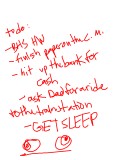 todo:
- BHS HW
- finish paper on the c. m.
- hit up the bank for
cash
- ask Dad for a ride
to the train station
- GET SLEEP